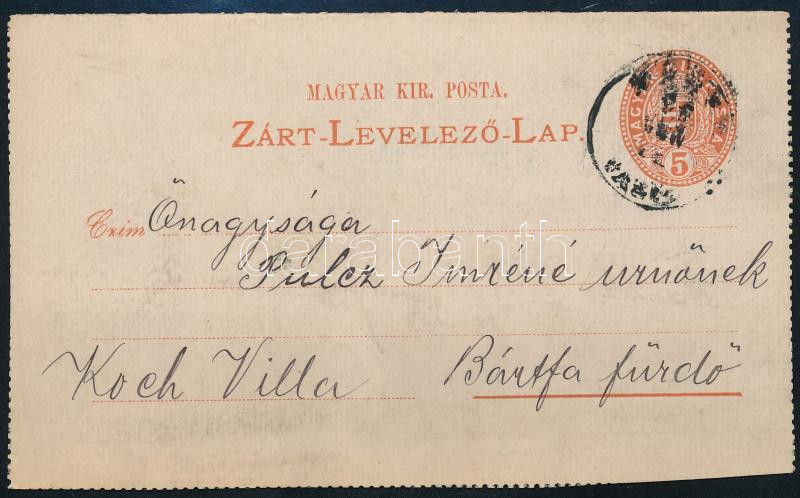 MAGYAR KIR. POSTA.
ZÁRT-LEVELEZŐ-LAP.
5
Czim Őnagysága
Pulcz Imréné urnőnek
Koch Villa Bártfa fürdő
darabanth